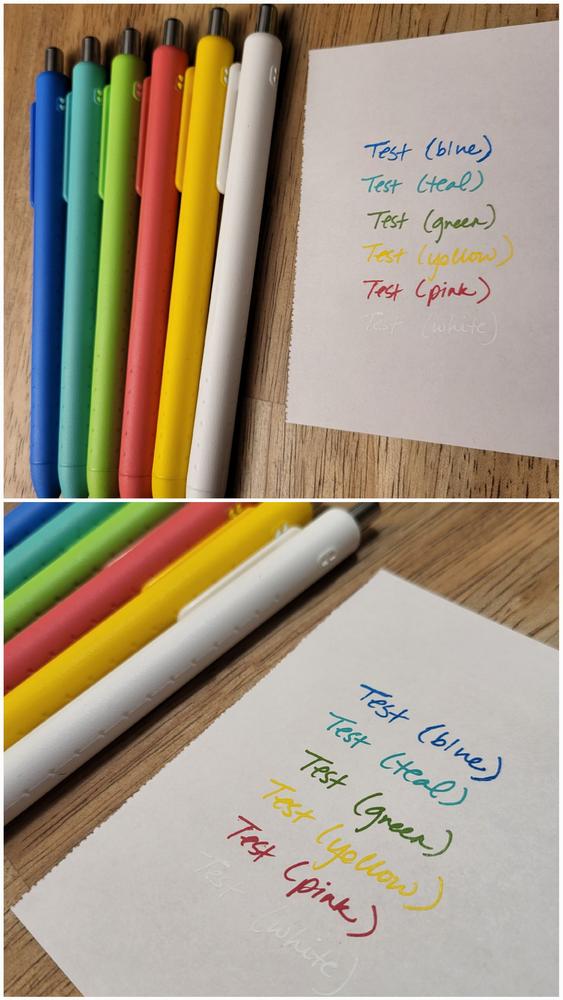 Test (blue)
Test (teal)
Test (green)
Test (yollow)
Test (pink)
Test (white)
Test (blue)
Test (teal)
Test (green)
Test (yollow)
Test (pink)
Test (white)